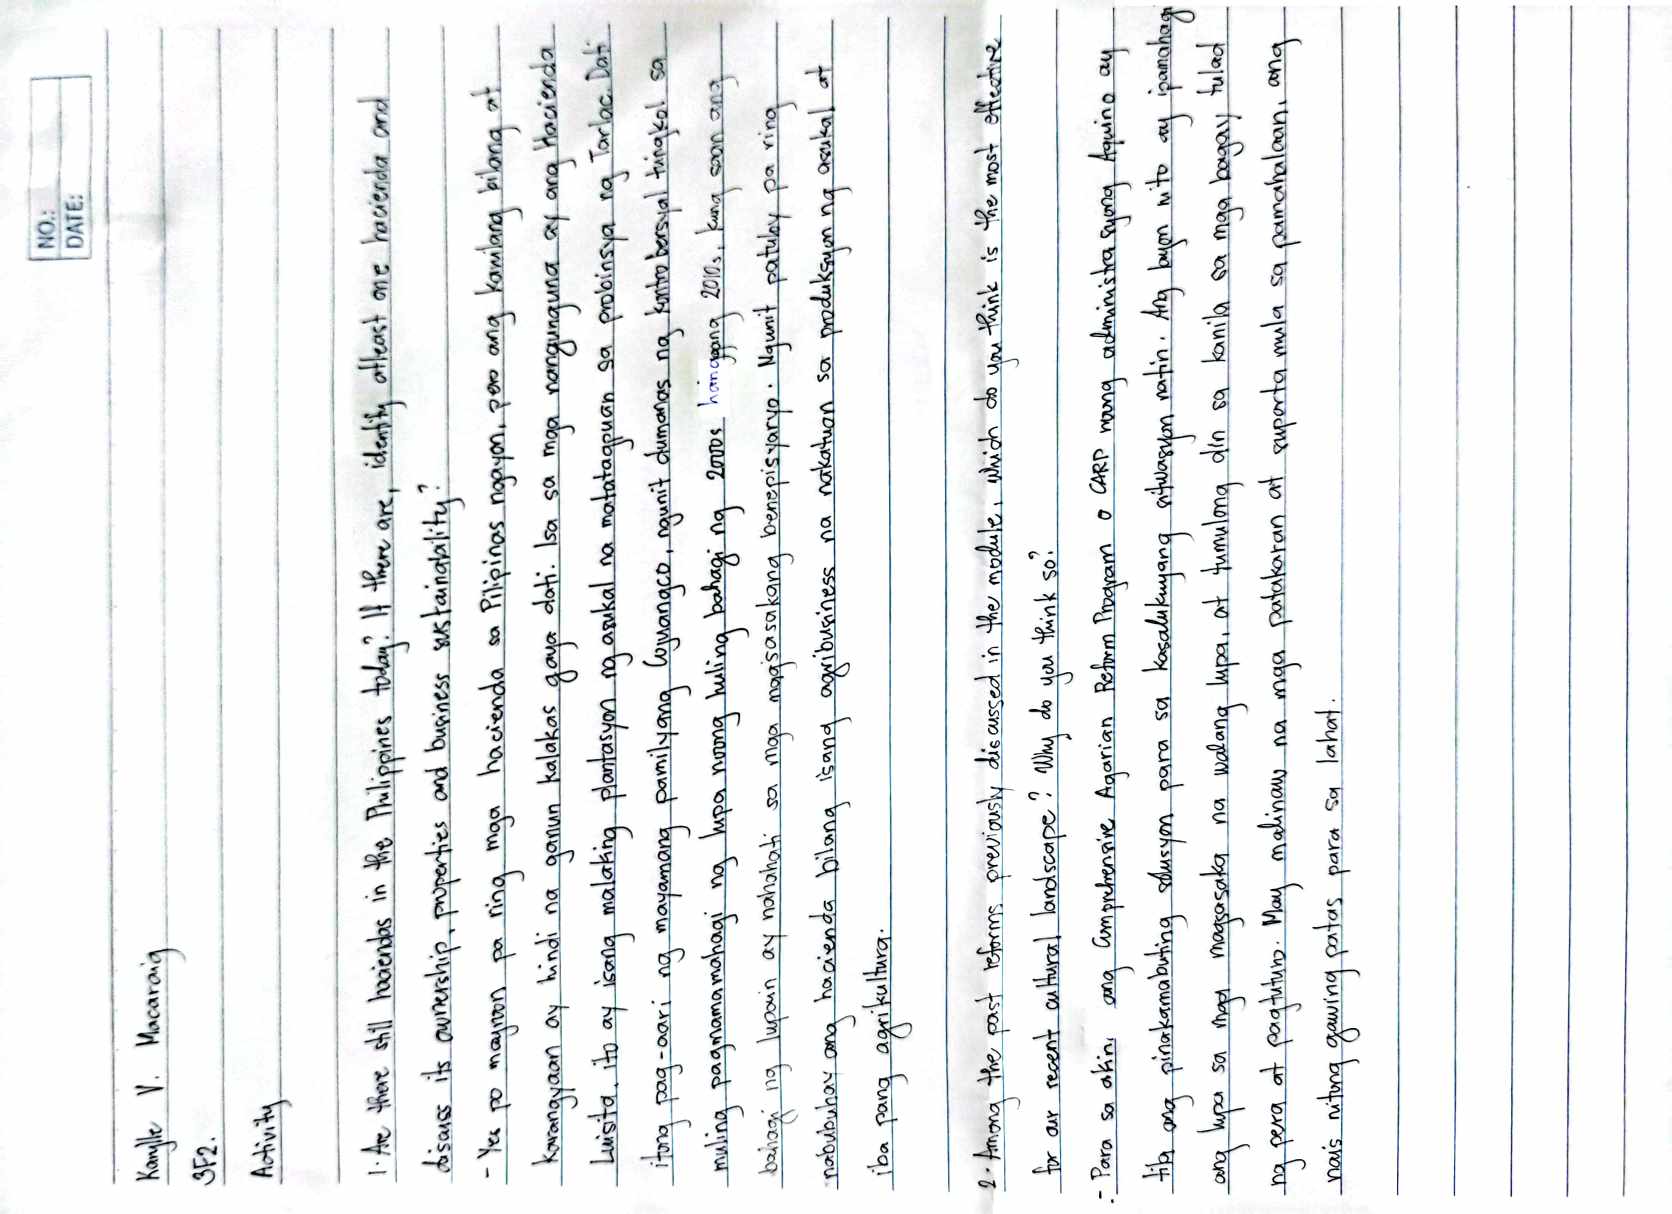 NO.:
DATE:
Kanylle V. Macaraig
3F2.
Activity
1. Are there still haciendas in the Philippines today? If there are, identify atleast one hacienda and
discuss its ownership, properties and business sustainability?
- Yes po mayroon pa ring mga hacienda sa Pilipinas ngayon, pero ang kanilang bilang at
karangyaan ay hindi na ganun kalakas gaya dati. Isa sa mga nanguguna ay ang Hacienda
Luisita, ito ay isang malaking plantasyon ng asukal na matatagpuan sa probinsya ng Tarlac. Dati
itong pag-aari ng mayamang pamilyang Cojuangco, ngunit dumanas ng kontrobersyal tungkol sa
muling pagmamamahagi ng lupa noong huling bahagi ng 2000s hanggang 2010s, kung saan ang
bahagi ng lupain ay nahahati sa mga magsasakang benepisyaryo. Ngunit patuloy pa ring
nabubuhay ang hacienda bilang isang agribusiness na nakatuon sa produksyon ng asukal at
iba pang agrikultura.
2. Among the past reforms previously discussed in the module, which do you think is the most effective
for our recent cultural landscape? Why do you think so?
- Para sa akin, ang Comprehensive Agarian Reform Program o CARP nang administrasyong Aquino ay
tila ang pinakamabuting solusyon para sa kasalukuyang sitwasyon natin. Ang layon nito ay ipamahagi
ang lupa sa mga magsasaka na walang lupa, at tumulong din sa kanila sa mga bagay tulad
ng pera at pagtuturo. May malinaw na mga patakaran at suporta mula sa pamahalaan, ang
nais nitong gawing patas para sa lahat.